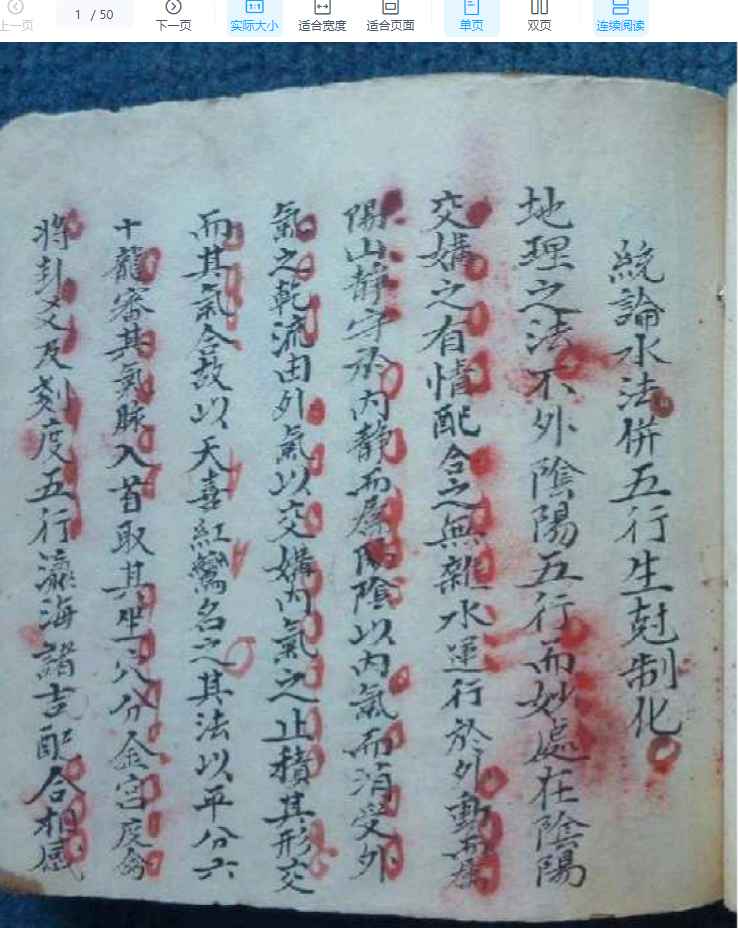 上一页
1 / 50
下一页
实际大小
适合宽度
适合页面
单页
双页
连续阅读
統論水法併五行生尅制化
地理之法不外陰陽五行而妙處在陰陽
交媾之有情配合之無雜水運行於外動而屬
陽山靜守於內靜而屬陰陰以內氣而消受外
氣之乾流由外氣以交媾內氣之止積其形交
而其氣合故以天喜紅鸞名之其法以平分六
十龍審其氣脉入首取其坐穴分金宮度
將卦爻及刻度五行瀛海諸吉配合相感